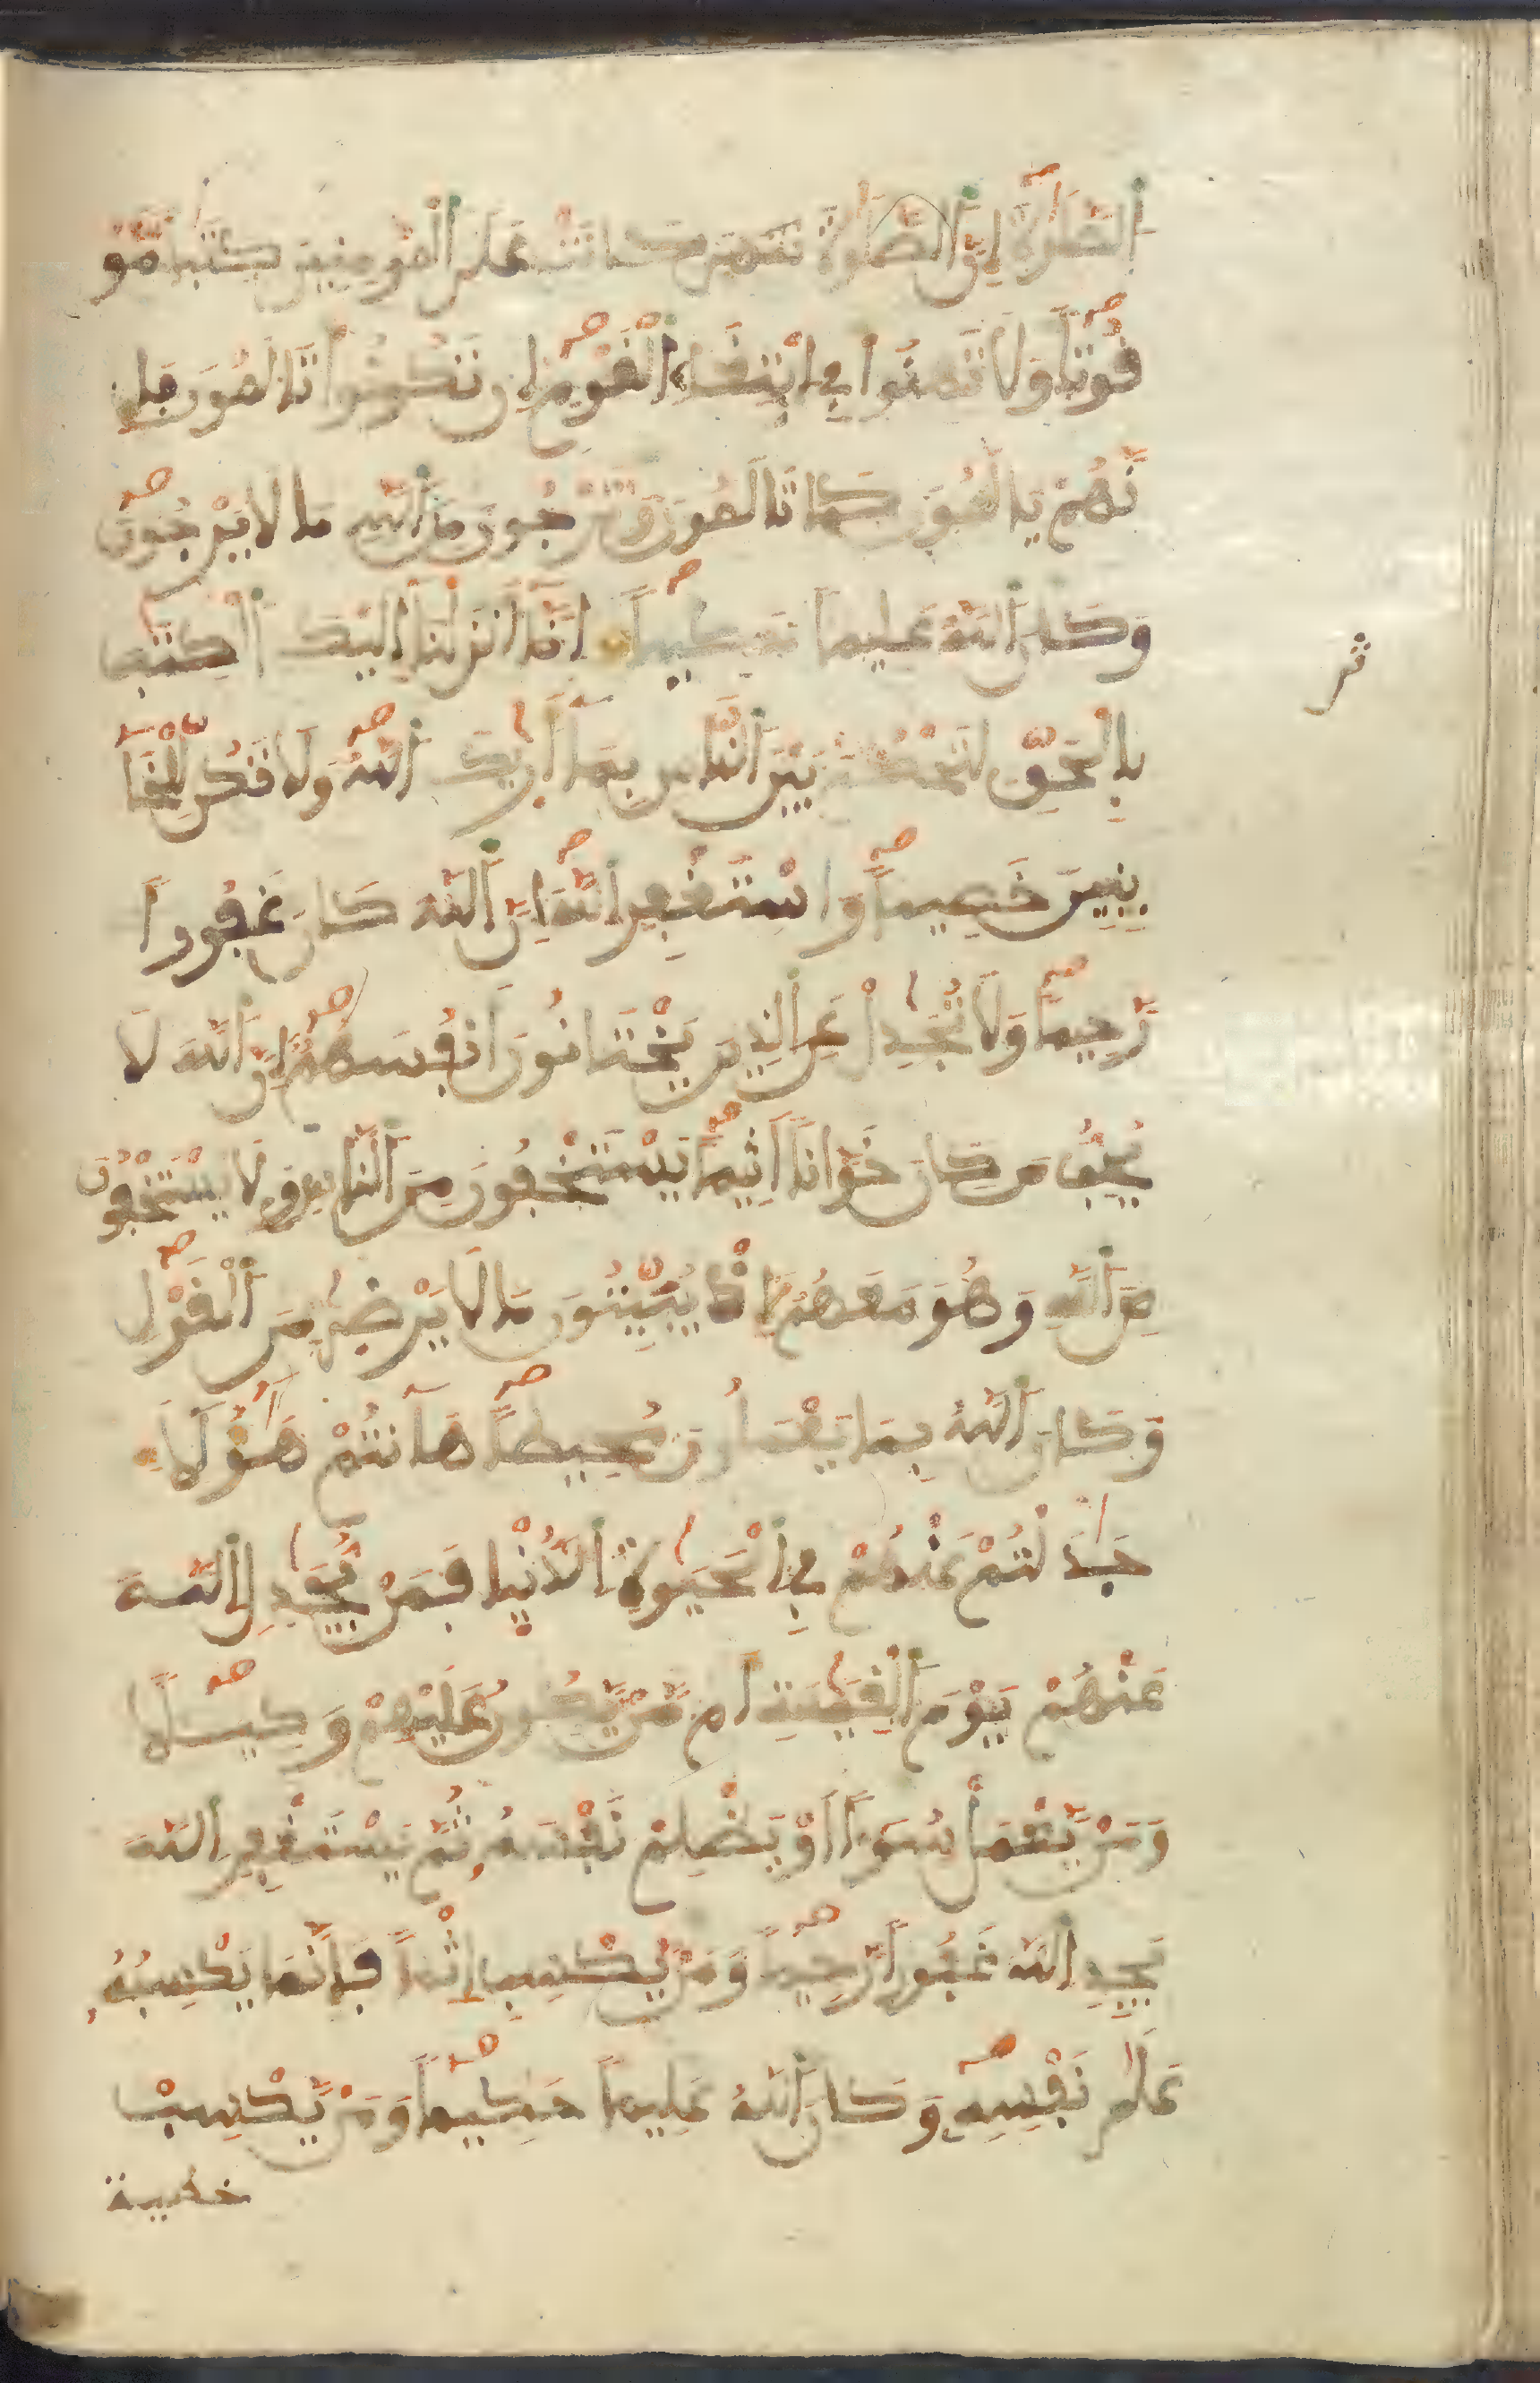 اَ۬لصَّلَوٰةَ إِنَّ اَ۬لصَّلَوٰةَ كَانَتْ عَلَى اَ۬لْمُومِنِينَ كِتَٰباً مَّوْ
قُوتاً وَلَا تَهِنُوا فِي اِبْتِغَاءِ اِ۬لْقَوْمِ إِن تَكُونُوا تَالَمُونَ فَإِ
نَّهُمْ يَالَمُونَ كَمَا تَالَمُونَ وَتَرْجُونَ مِنَ اَ۬للَّهِ مَا لَا يَرْجُونَ
وَكَانَ اَ۬للَّهُ عَلِيماً حَكِيماً اِنَّا أَنزَلْنَا إِلَيْكَ اَ۬لْكِتَٰبَ
بِالْحَقِّ لِتَحْكُمَ بَيْنَ اَ۬لنَّاسِ بِمَا أَرَيٰكَ اَ۬للَّهُ وَلَا تَكُن لِّلْخَا
ينِينَ خَصِيماً وَاسْتَغْفِرِ اِ۬للَّهَ إِنَّ اَ۬للَّهَ كَانَ غَفُوراً
رَّحِيماً وَلَا تُجَٰدِلْ عَنِ اِ۬لذِينَ يَخْتَانُونَ أَنفُسَهُمْ إِنَّ اَ۬للَّهَ لَا
يُحِبُّ مَن كَانَ خَوَّاناً أَثِيماً يَسْتَخْفُونَ مِنَ اَ۬لنَّاسِ وَلَا يَسْتَخْفُونَ
مِنَ اَ۬للَّهِ وَهُوَ مَعَهُمُ إِذْ يُبَيِّتُونَ مَا لَا يَرْضَىٰ مِنَ اَ۬لْقَوْلِ
وَكَانَ اَ۬للَّهُ بِمَا يَعْمَلُونَ مُحِيطاً هَآنتُمْ هَٰؤُلَاءِ
جَٰدَلْتُمْ عَنْهُمْ فِي اِ۬لْحَيَوٰةِ اِ۬لدُّنْيَا فَمَنْ يُّجَٰدِلُ اُ۬للَّهَ
عَنْهُمْ يَوْمَ اَ۬لْقِيَٰمَةِ أَم مَّنْ يَّكُونُ عَلَيْهِمْ وَكِيلاً
وَمَنْ يَّعْمَلْ سُوءاً أَوْ يَظْلِمْ نَفْسَهُ ثُمَّ يَسْتَغْفِرِ اِ۬للَّهَ
يَجِدِ اِ۬للَّهَ غَفُوراً رَّحِيماً وَمَنْ يَّكْسِبِ إِثْماً فَإِنَّمَا يَكْسِبُهُ
عَلَىٰ نَفْسِهِ وَكَانَ اَ۬للَّهُ عَلِيماً حَكِيماً وَمَنْ يَّكْسِبْ
خطيئة